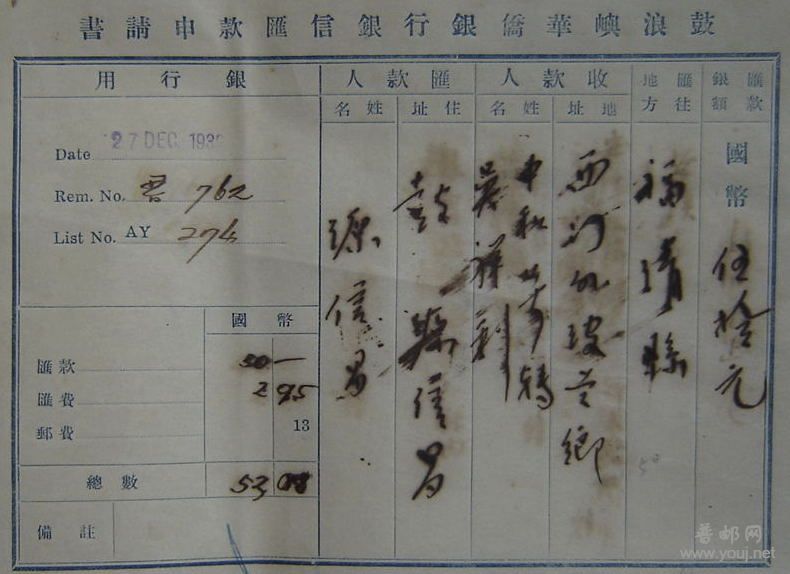 鼓浪嶼華僑銀行銀信匯款申請書
匯款銀額
國幣 伍拾元
匯往地方
福清縣
收款人
地址
西河外玻兰鄉
姓名
匯款人
住址
鼓 源信昌
姓名
源信昌
銀行用
Date 27 DEC 193
Rem. No. 762
List No. AY 274
國幣
匯款 50 —
匯費 2 95
郵費 13
總數 53 08
備註
普邮网
www.youj.net